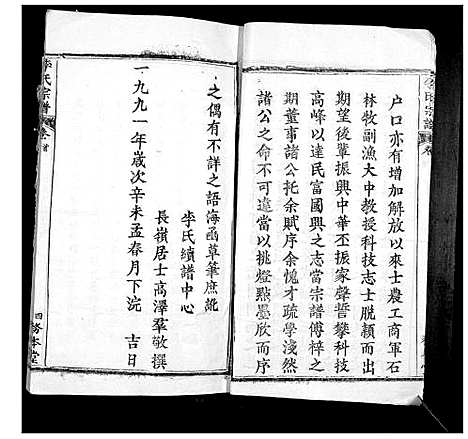 户口亦有增加解放以來士農工商軍石
林牧副漁大中教授科技志士脱颖而出
期望後輩振興中華丕振家聲誓攀科技
高峰以達民富國興之志當宗譜傅梓之
期董事諸公托余賦序余愧才疏學淺然
諸公之命不可違當以挑燈點墨欣而序
之偶有不詳之語海函草筆庶訛
李氏續譜中心
長嶺居士高澤羣敬撰
一九九一年歲次辛未孟春月下浣 吉日
李氏宗譜
卷首
四